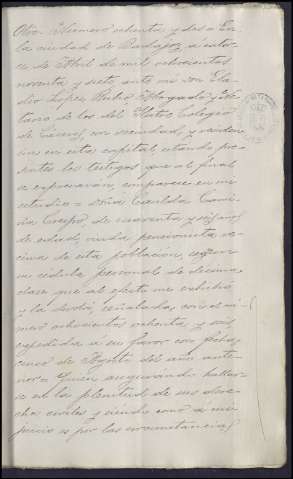 Otro Número ochenta y dos = En
la ciudad de Badajoz a cator
ce de Abril de mil ochocientos
noventa y siete ante mi Don Ela
dio López Rubio Abogado y No
tario de los del Ilustre Colegio
de Cáceres, con vecindad y residen
cia en esta capital estando pre
sentes los testigos que al final
se expresarán, comparece en mi
estudio = Doña Casilda
Crespo, de cuarenta y
de edad, viuda pensionista ve
cina de esta población, según
su cédula personal de décima
clase que al efecto me exhibió
y la devolví, señalada con el nú
mero ochocientos ochenta y seis
expedida a su favor con fecha
once de Agosto del año ante
rior = Quien asegurando hallar
se en la plenitud de sus dere
chos civiles y siendo como a mi
juicio es por las circunstancias